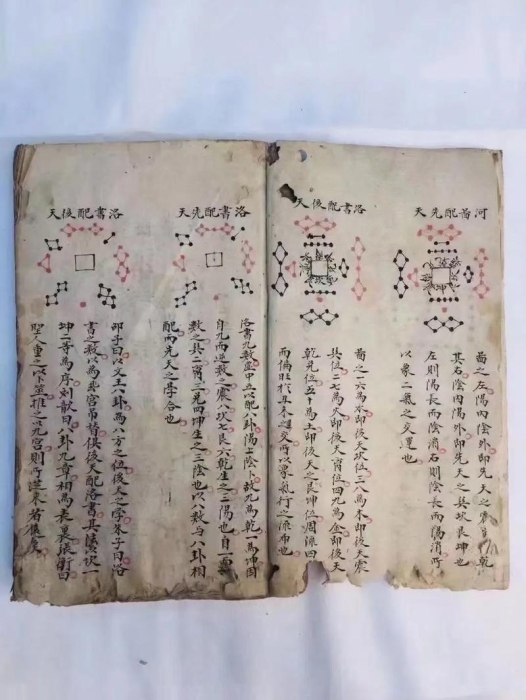 河啚配先天
啚之左陽內陰外即先天之震
乾
其右陰內陽外即先天之巽坎艮坤也
左則陽長而陰消右則陰長而陽消所
以象二氣之交運也
洛書配後天
啚之一六為水即後天坎位三八為木即後天震
巽位二七為火即後天离位四九為金即後天
乾兌位五十為土即後天之艮坤位周流四
而偏旺於丑未之交所以象氣行之流布也
洛書配先天
洛書九數虛中五以配八卦陽上陰下故九為乾一為坤因
自九而逆數之震八坎七艮六乾生之三陽也自一而
數之巽二离三兌四坤生之三陰也以八數与八卦相
配而先天之學合也
洛書配後天
邵子曰以文王八卦為八方之位後天之學朱子曰洛
書之數以為九宮
俱後天配洛書其法坎一
坤二等為序刘歆曰八卦九章相為表裏張衡曰
聖人重之以卜筮推之以九宮則所從來者
矣